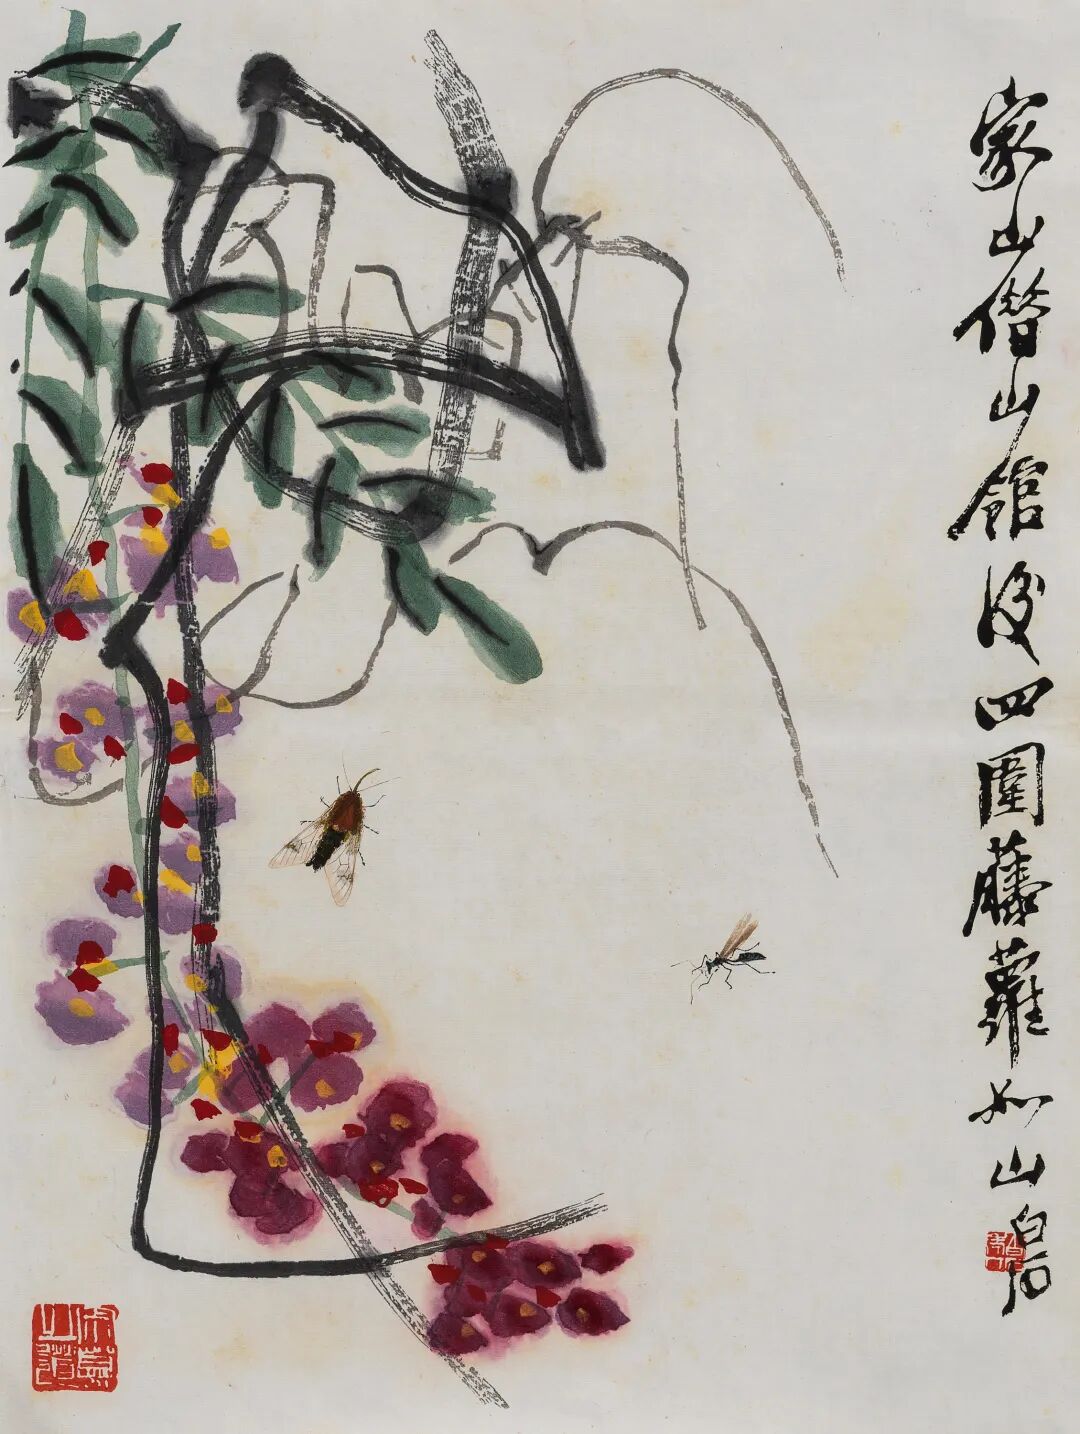 家山借山館後四圍藤蘿如山白石